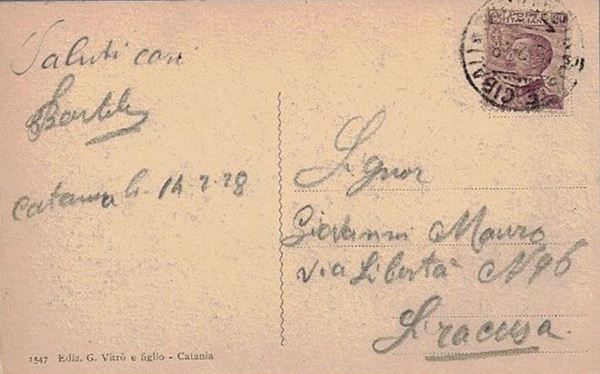 Saluti cari
Catania li 14-2-28
Signor
Giovanni Mauro
via Libertà N 96
Siracusa
1547 Ediz. G. Vitrò e figlio - Catania